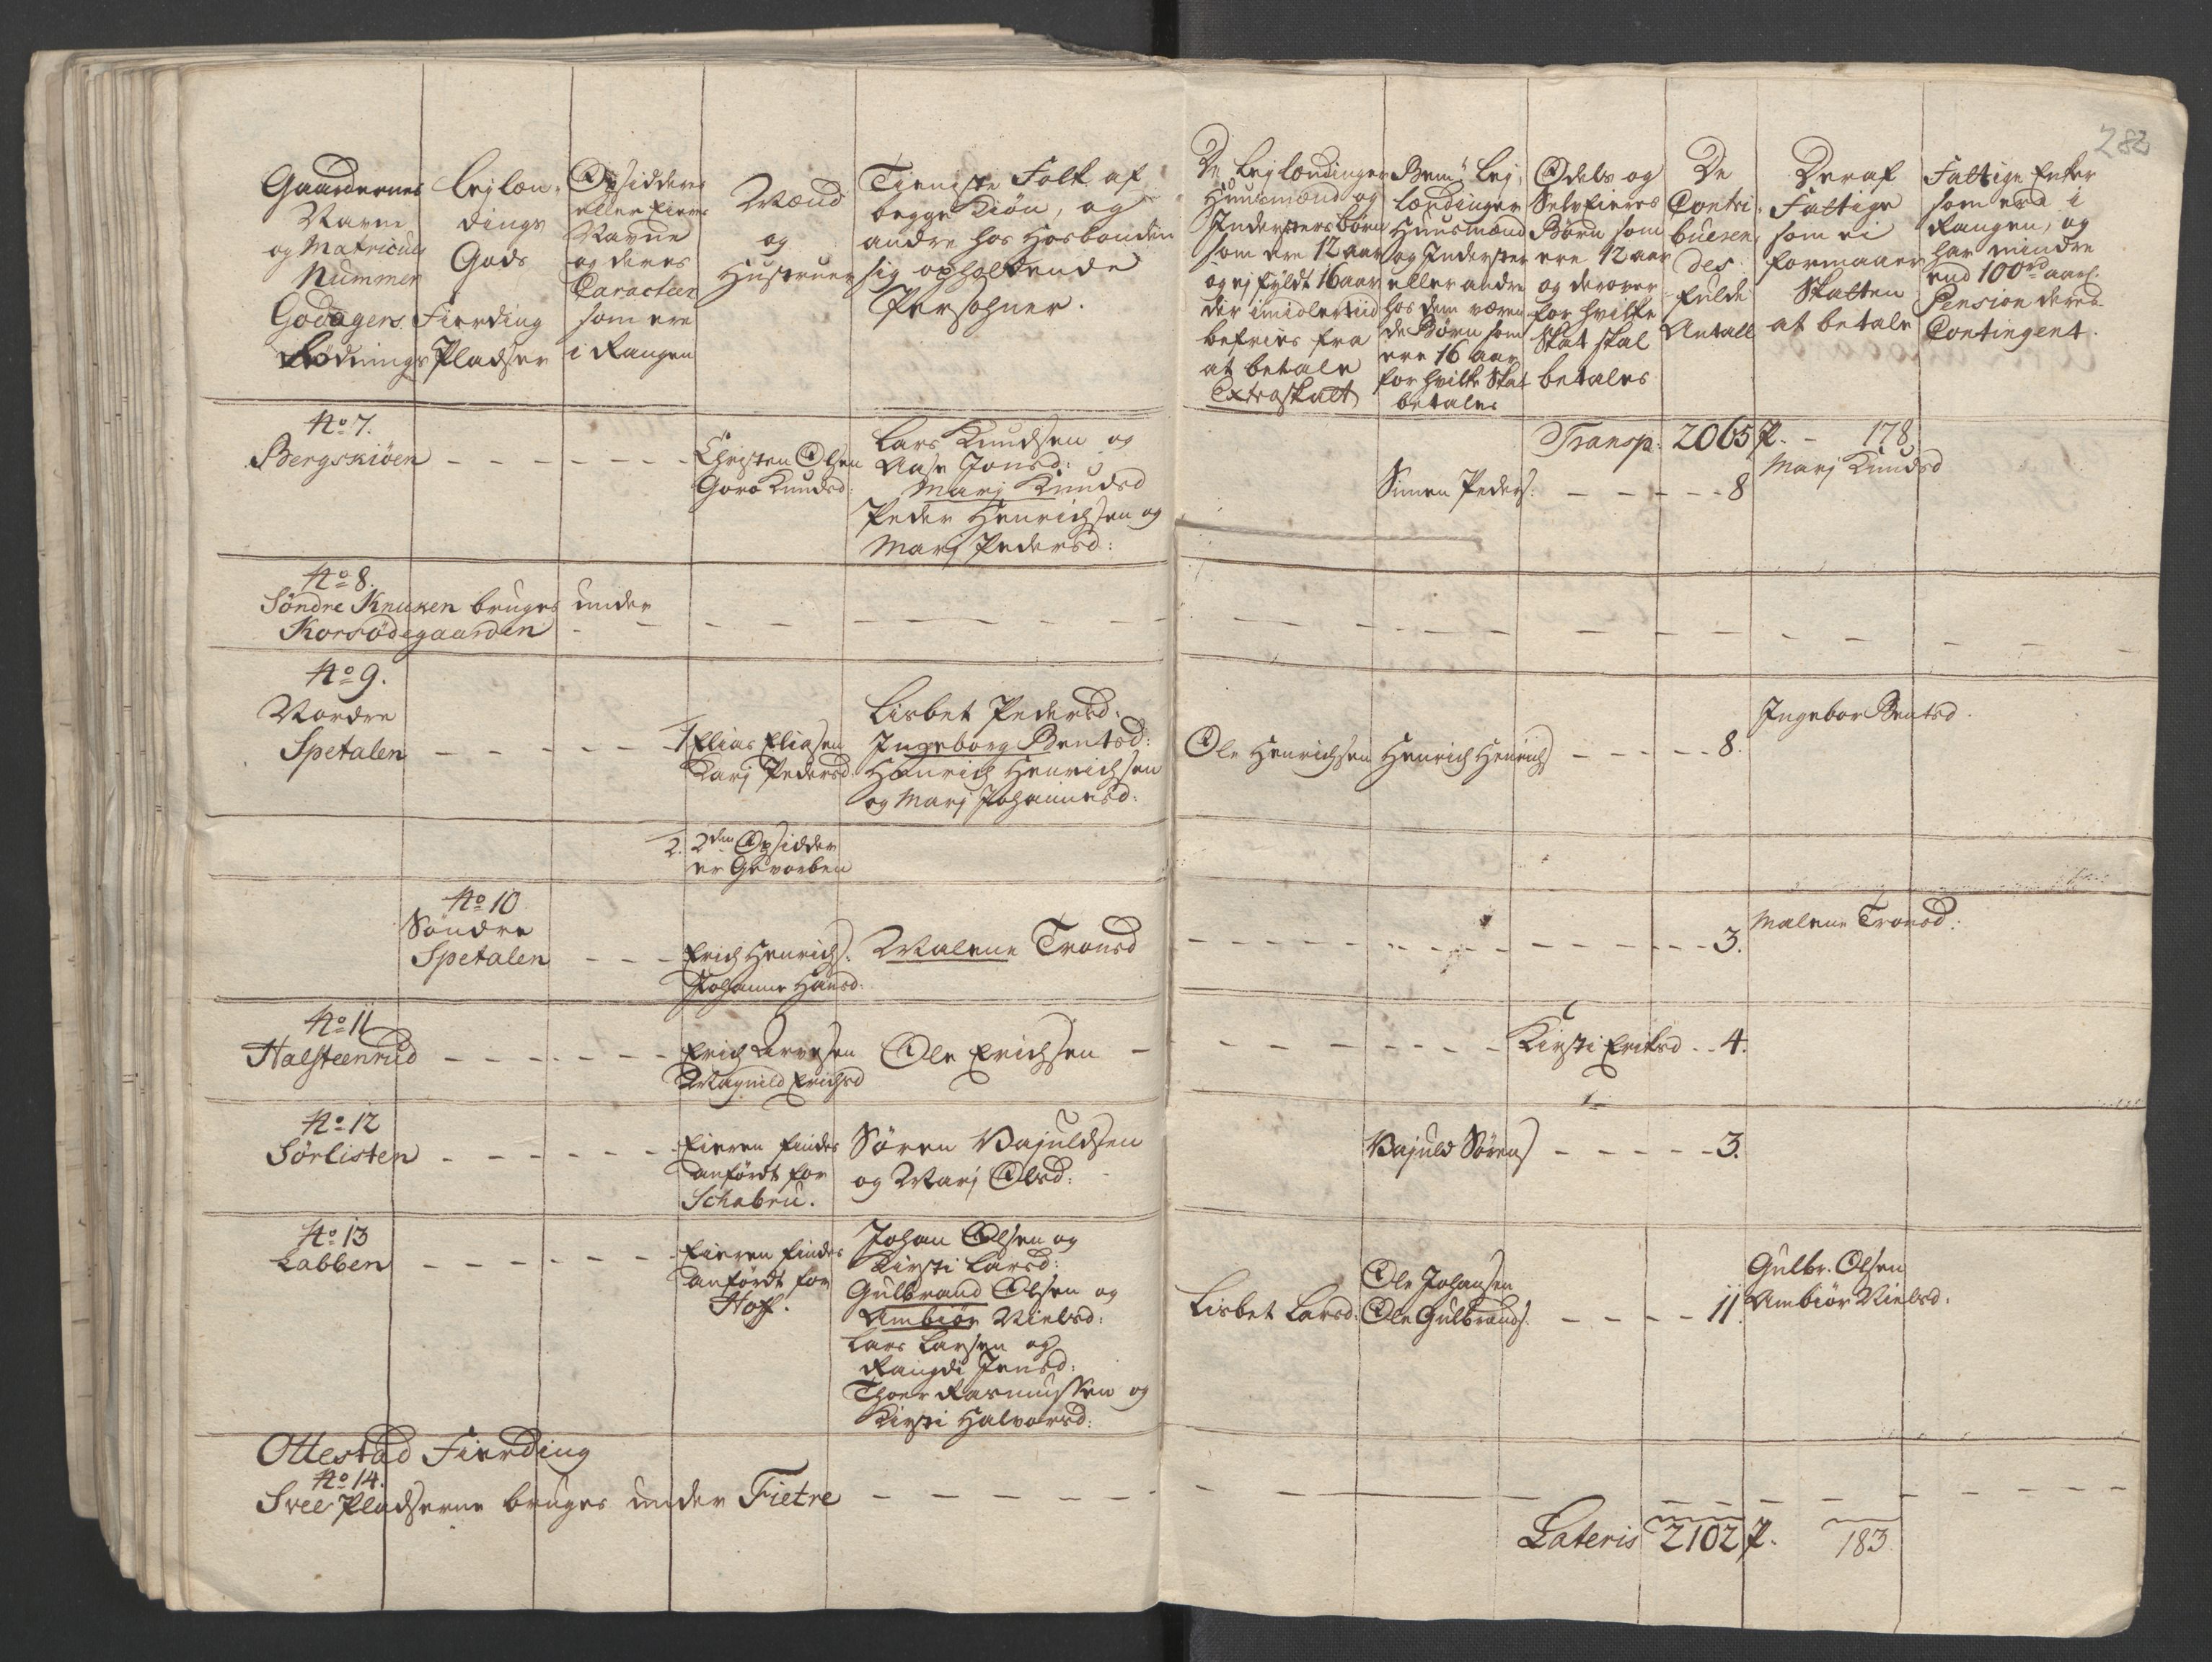 282
Gaardernes
Navn
og Matricul
Nummer
Godagers
Rødnings
Lejlæn-
dings
Gods
Fierding
Pladser
Opsiddere
eller Eiers
Navne
og deres
Caracteer
som ere
i Rangen
Mænd
og
Hustruer
Tieniste Folk af
begge Kiøn, og
andre hos Hosbonden
sig opholdende
Persohner.
De Lejlændinger
Huusmænd og
Inderstersbørn
som ere 12 aar
og ej fyldt 16 aar
der imidlertiid
befries fra
at betale
Extraskatt
Bem: Lej
lændinger
Huusmænd
og Inderster
eller andre
hos dem væren
de Børn som
ere 16 aar
for hvilke Skat
betales
Odels og
Selveieres
Børn som
ere 12 aar
og derover
for hvilke
Skat skal
betales
De
Contri
bueren
des
fulde
Antall
Deraf
Fattige
som ei
formaaer
Skatten
at betale
Fattige Enker
som ere i
Rangen, og
har mindre
end 100 rd aarl.
Pension deres
Contingent.
Transp. 2065 P. - 178
No 7.
Bergskiøen - - - - - -
Christen Olsen
Goro Knudsd:
Lars Knudsen og
Aase Jonsd:
Marj Knudsd
Peder Henrichsen og
Marj Pedersd:
Simen Peders: - - - - - 8
Marj Knudsd
No 8.
Søndre Knuken bruges under
Korsødegaarden - - - - - - - - -
No 9.
Nordre
Spetalen - - - - - -
1 Elias Eliasen
Karj Pedersd:
Lisbet Pedersd:
Ingeborg Bentsd:
Henrich Henrichsen
og Marj Johannesd:
Ole Henrichsen Henrich Henrichs - - - - - 8.
Ingebor Bentsd.
2. 2den Opsidder
er Gevorben
No 10
Søndre
Spetalen - - -
Erich Henrichs:
Johanne Hansd:
Malene Tronsd
- - - - - - - - - - - - - - 3.
Malene Tronsd:
No 11
Halsteenrud - - - - - - -
Erich Arvesen
Magnild Erichsd
Ole Erichsen -
- - - - - - - - Kirsti Eriksd - - 4.
No 12
Sørlisten - - - - - -
Eieren findes
anført for
Schabru.
Søren Bajuldsen
og Marj Olsd:
Bajuld Sørens - - - - - - 3.
No 13
Labben - - - - - -
Eieren findes
anført for
Hoff.
Johan Olsen og
Kirsti Larsd:
Gulbrand Olsen og
Ambiør Nielsd:
Lars Larsen og
Rangdi Jensd:
Thoer Rasmussen og
Kirsti Halvorsd:
Lisbet Larsd:
Ole Johansen
Ole Gulbrands: - - - - - 11.
Gulbr. Olsen
Ambiør Nielsd:
Ottestad Fierding
No 14.
Svee Pladserne bruges under Fietre - - - - - -
Lateris 2102 P. 183.